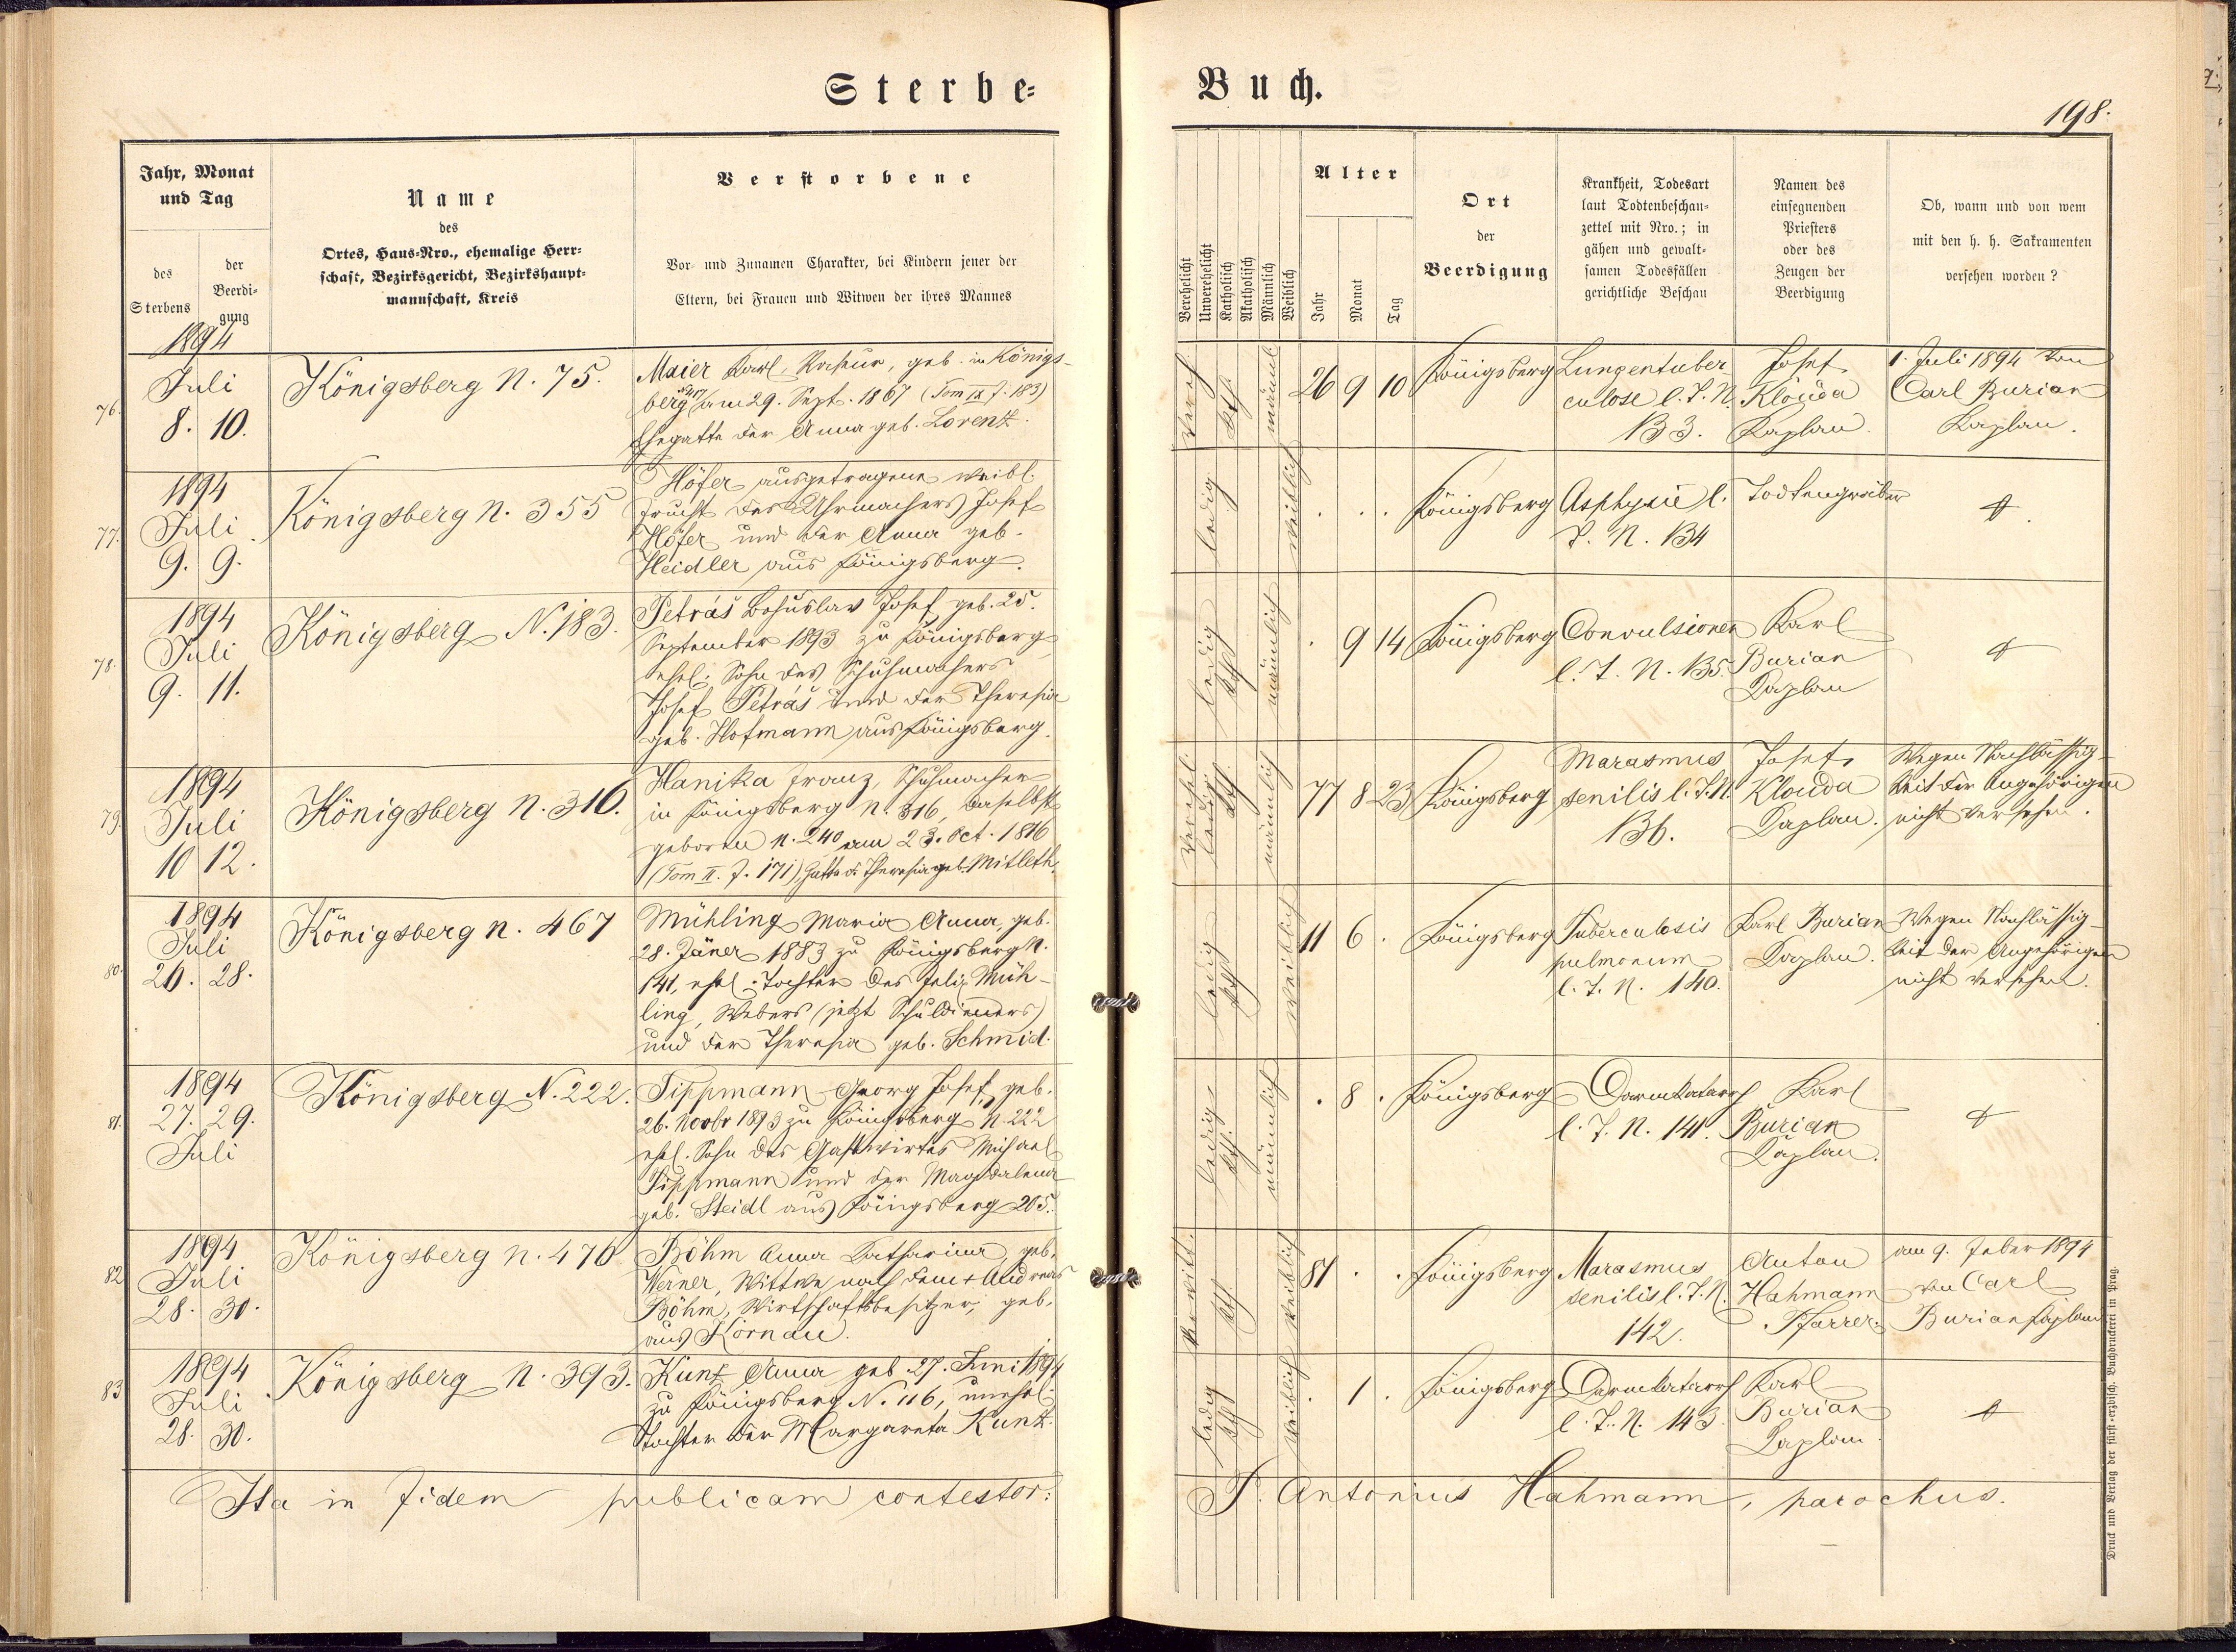 Sterbe=
Buch.
198.
Jahr, Monat
und Tag
des
Sterbens
der
Beerdi=
gung
Name
des
Ortes, Haus=Nro., ehemalige Herr=
schaft, Bezirksgericht, Bezirkshaupt=
mannschaft, Kreis
Verstorbene
Vor= und Zunamen Charakter, bei Kindern jener der
Eltern, bei Frauen und Witwen der ihres Mannes
Verehelicht
Unverehelicht
Katholisch
Akatholisch
Männlich
Weiblich
Alter
Jahr
Monat
Tag
Ort
der
Beerdigung
Krankheit, Todesart
laut Todtenbeschau=
zettel mit Nro.; in
gähen und gewalt=
samen Todesfällen
gerichtliche Beschau
Namen des
einsegnenden
Priesters
oder des
Zeugen der
Beerdigung
Ob, wann und von wem
mit den h. h. Sakramenten
versehen worden?
76.
1894
Juli
8. 10.
Königsberg N. 75.
Maier Karl, geb. in Königs-
berg am 29. Sept. 1867 (Tom IX f. 183)
Ehegatte der Anna geb. Lorenz.
vereh.
kth.
männl
26 9 10
Königsberg
Lungentuber-
culose l. T. N.
133.
Josef
Klouda
Kaplan.
1. Juli 1894 von
Carl Burian
Kaplan.
77.
1894
Juli
9. 9.
Königsberg N. 355
Höfer ausgetragene weibl.
Frucht des Uhrmachers Josef
Höfer und der Anna geb.
Heidler aus Königsberg.
ledig
weiblich
. . .
Königsberg
Asphyxie l.
T. N. 134
Todtengräber
+
78.
1894
Juli
9. 11.
Königsberg N. 183.
Petráš Bohuslav Josef, geb. 25.
September 1893 zu Königsberg
ehel. Sohn des Schuhmachers
Josef Petráš und der Theresia
geb. Hofmann aus Königsberg.
ledig
kth
männlich
. 9 14
Königsberg
Convulsionen
l. T. N. 135.
Karl
Burian
Kaplan
+
79.
1894
Juli
10 12.
Königsberg N. 316.
Hanika Franz, Schuhmacher
in Königsberg N. 316, daselbst
geboren N. 240 am 23. Oct. 1816
(Tom II. f. 171), Gatte d. Theresia geb. Mitleth.
verehl.
ledig
kth.
männlich
77 8 23
Königsberg
Marasmus
senilis l. T. N.
136.
Josef
Klouda
Kaplan.
Wegen Nachlässig-
keit der Angehörigen
nicht versehen.
80.
1894
Juli
26. 28.
Königsberg N. 467
Mühling Maria Anna, geb.
28. Jäner 1883 zu Königsberg N.
141, ehel. Tochter des Felix Müh-
ling, Webers (jetzt Schuldieners)
und der Theresia geb. Schmid.
ledig
kth
weiblich
11 6 .
Königsberg
Tuberculosis
pulmonum
l. T. N. 140.
Karl Burian
Kaplan.
Wegen Nachlässig-
keit der Angehörigen
nicht versehen.
81.
1894
27. 29.
Juli
Königsberg N. 222.
Tippmann Georg Josef, geb.
26. Novbr 1893 zu Königsberg N. 222
ehel. Sohn des Gastwirtes Michael
Tippmann und der Magdalena
geb. Steidl aus Königsberg 205.
ledig
kth.
männlich
. 8 .
Königsberg
Darmkatarrh
l. T. N. 141.
Karl
Burian
Kaplan.
+
82
1894
Juli
28. 30.
Königsberg N. 470
Böhm Anna Katharina, geb.
Werner, Wittwe nach dem + Andreas
Böhm, Wirtschaftsbesitzer, geb.
aus Kornau.
verwit.
kth
weiblich
81 . .
Königsberg
Marasmus
senilis l. T. N.
142.
Anton
Hahmann
Pfarrer.
am 9. Feber 1894
von Carl
Burian Kaplan
83
1894
Juli
28. 30.
Königsberg N. 393.
Kunz Anna geb. 27. Juni 1894
zu Königsberg N. 116, unehel.
Tochter der Margareta Kunz.
ledig
kth
weiblich
. 1 .
Königsberg
Darmkatarrh
l. T. N. 143
Karl
Burian
Kaplan
+
Ita in fidem publicam contestor:
P. Antonius Hahmann, parochus.
Druck und Verlag der fürst=erzbisch. Buchdruckerei in Prag.